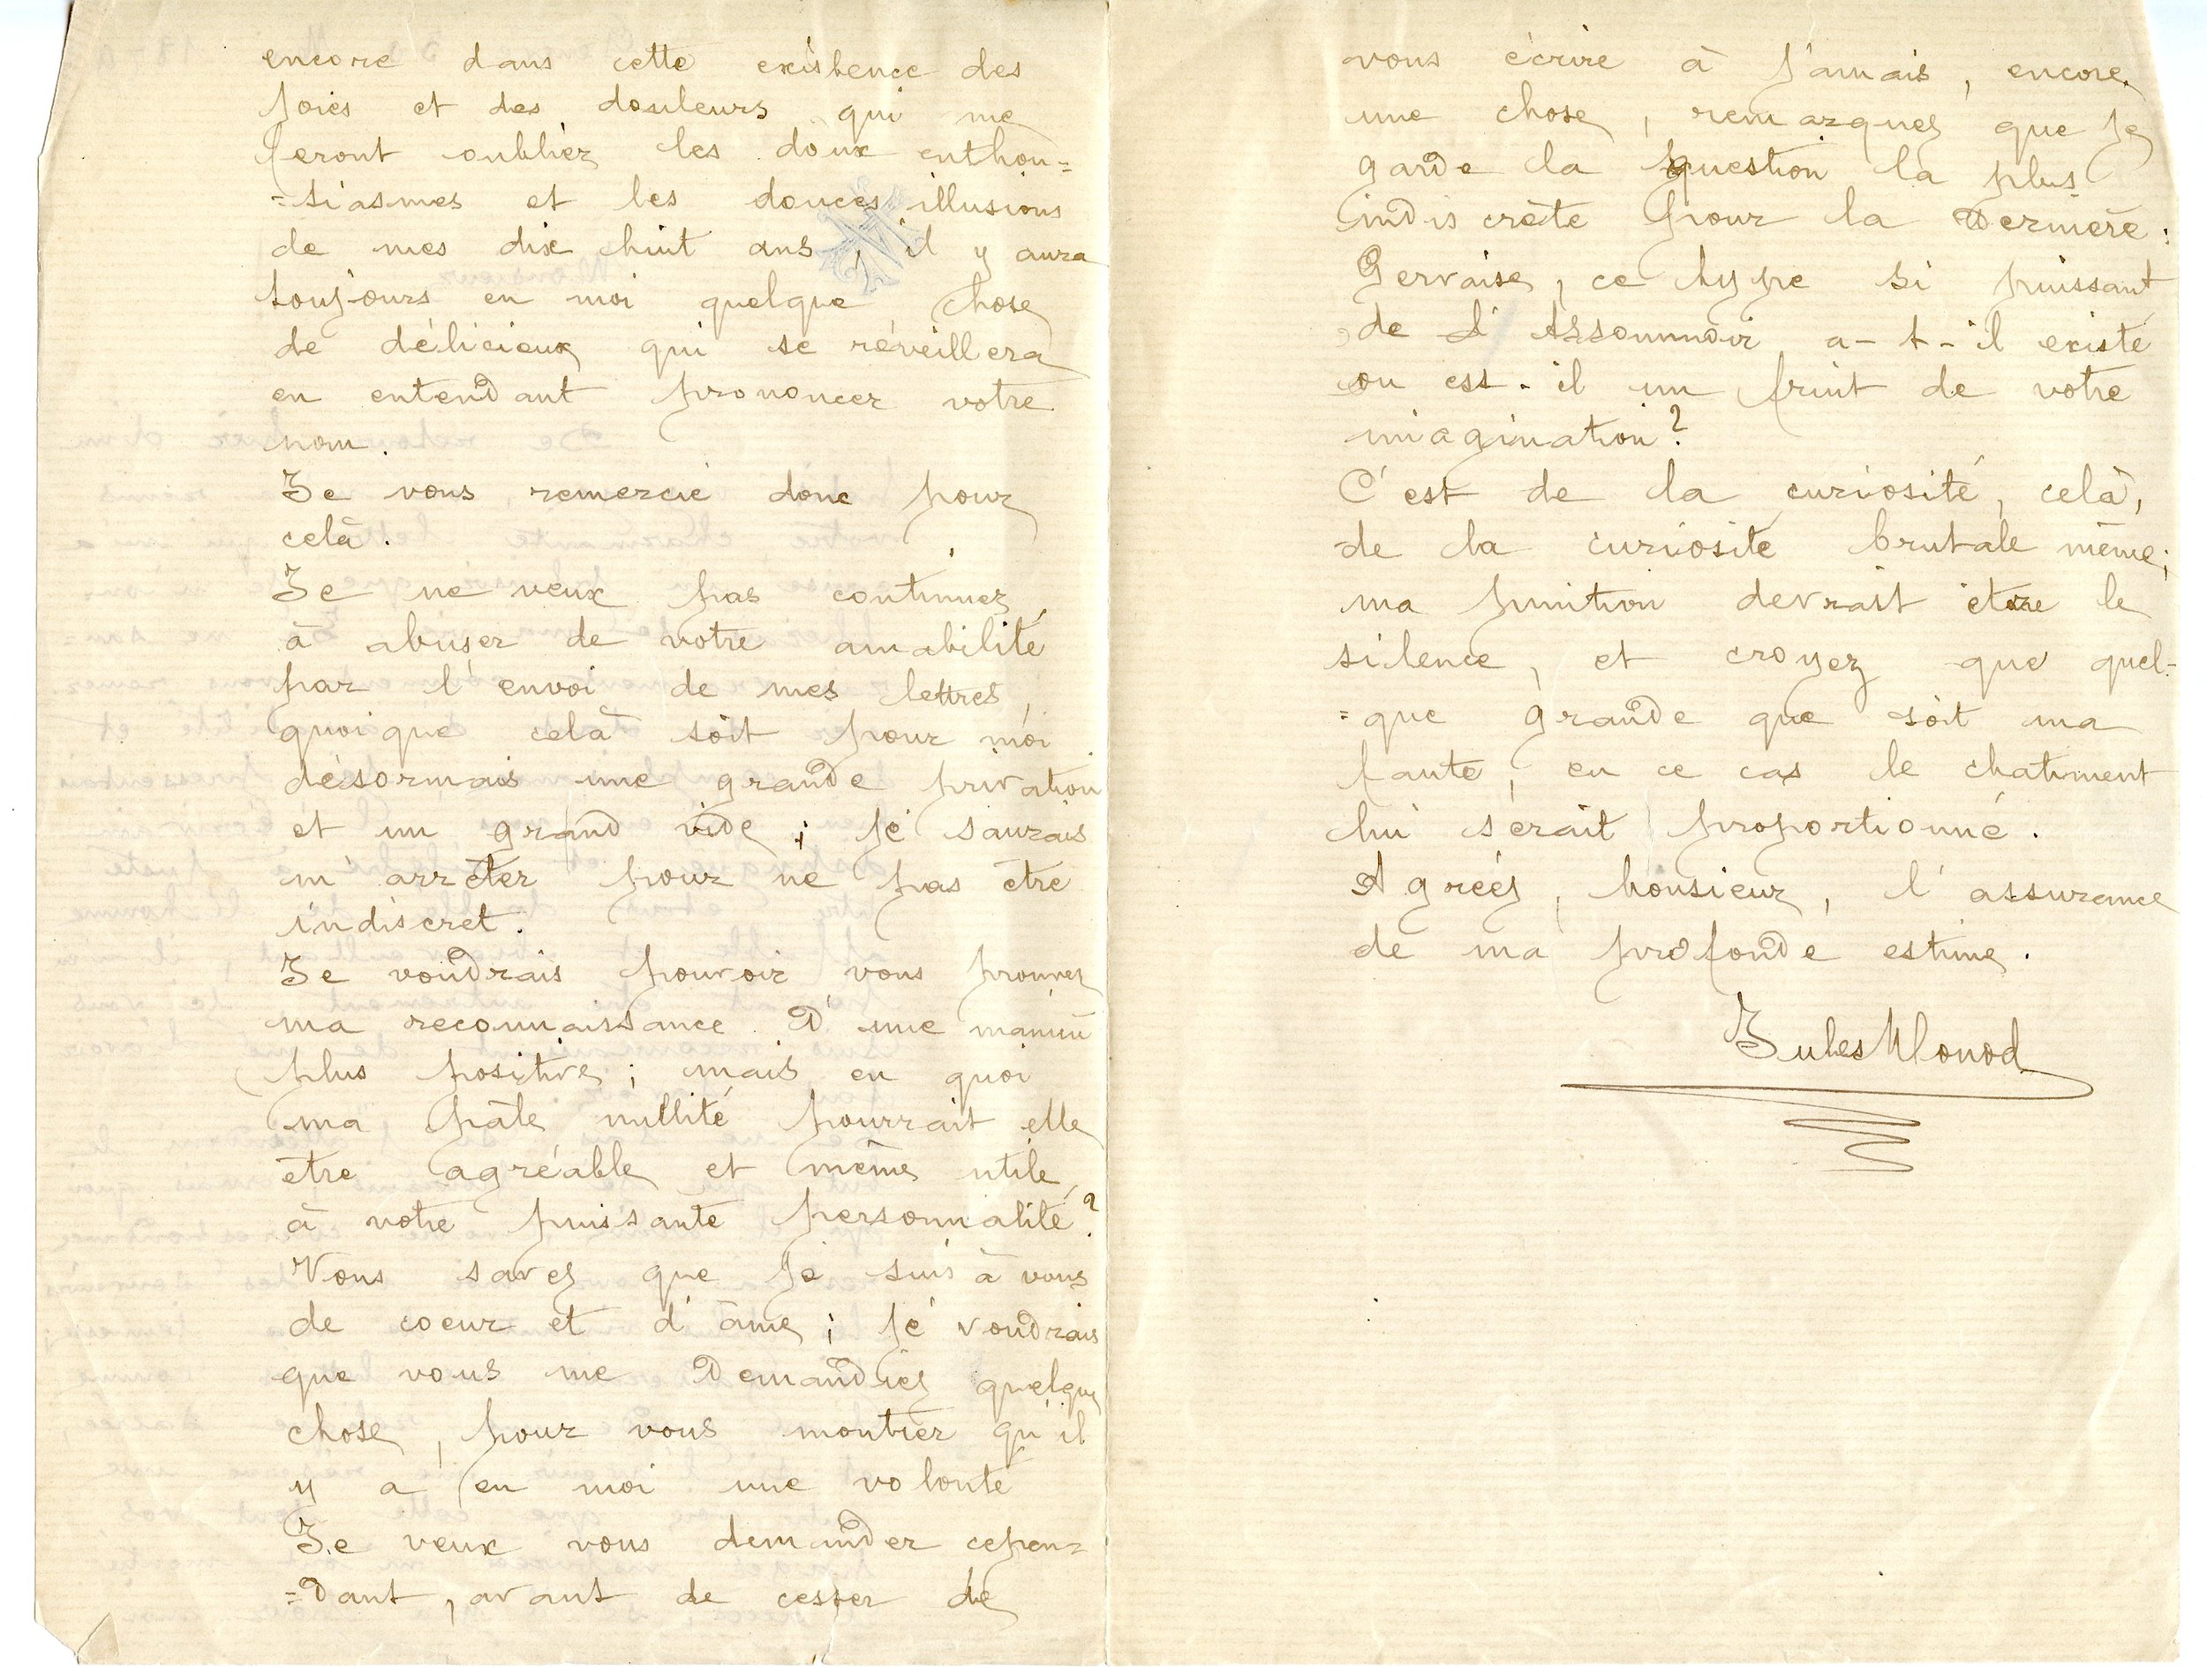 encore dans cette existence des
joies et des douleurs qui me
feront oublier les doux enthou=
=siasmes et les douces illusions
de mes dix huit ans, il y aura
toujours en moi quelque chose
de délicieux qui se réveillera
en entendant prononcer votre
nom.
Je vous remercie donc pour
celà.
Je ne veux pas continuer
à abuser de votre amabilité
par l'envoi de mes lettres,
quoique celà soit pour moi
désormais une grande privation
et un grand vide ; je saurais
m'arrêter pour ne pas être
indiscret.
Je voudrais pouvoir vous prouver
ma reconnaissance D'une manière
plus positive ; mais en quoi
ma pâle nullité pourrait elle
être agréable et même utile
à votre puissante personnalité ?
Vous savez que je suis à vous
de coeur et d'âme ; je voudrais
que vous me Demandiez quelque
chose, pour vous montrer qu'il
y a en moi une volonté
Je veux vous demander cepen=
=Dant, avant de cesser de
vous écrire à jamais, encore
une chose, remarquez que je
garde la question la plus
indiscrète pour la Dernière :
Gervaise, ce type si puissant
de L'Assommoir a-t-il existé
ou est-il un fruit de votre
imagination ?
C'est de la curiosité, celà,
de la curiosité brutale même ;
ma punition devrait être le
silence, et croyez que quel-
=que grande que soit ma
faute, en ce cas le chatiment
lui serait proportionné.
Agréez, Monsieur, l'assurance
de ma profonde estime.
Jules Monod